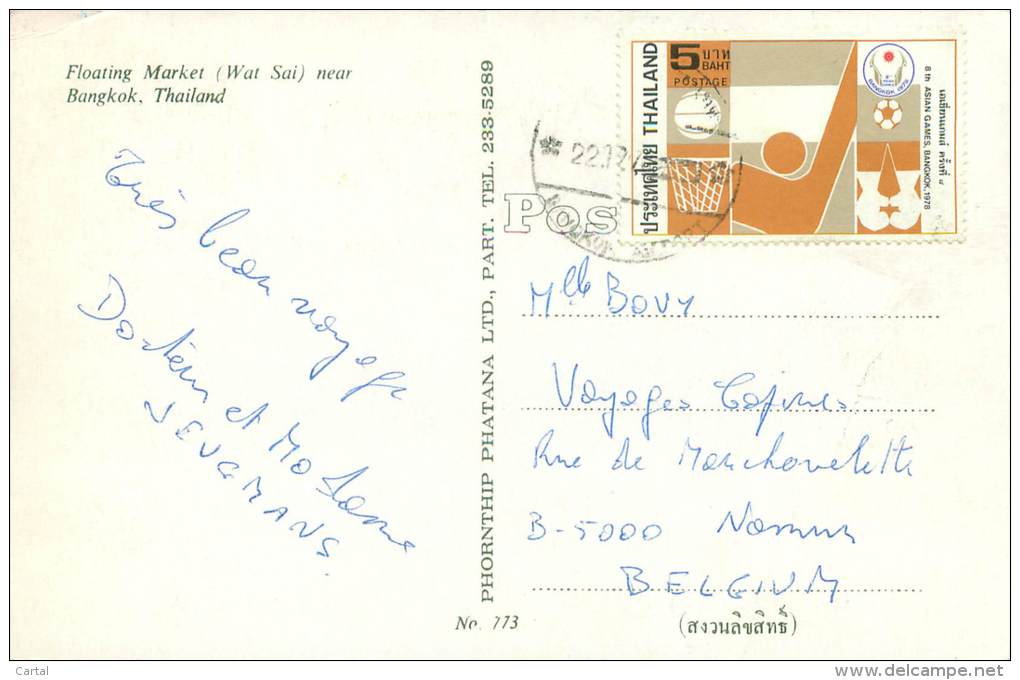 Floating Market (Wat Sai) near
Bangkok, Thailand
Très beau voyage
Docteur et Madame
PHORNTHIP PHATANA LTD., PART. TEL. 233-5289
No. 773
POS
ประเทศไทย THAILAND
5 บาท
BAHT
POSTAGE
BANGKOK 1978
เอเชียนเกมส์ ครั้งที่ ๘
8 th ASIAN GAMES, BANGKOK, 1978
22.12
Mlle BOVY
Voyages
Rue de Marchovelette
B-5000 Namur
BELGIUM
(สงวนลิขสิทธิ์)
Cartal
www.delcampe.net